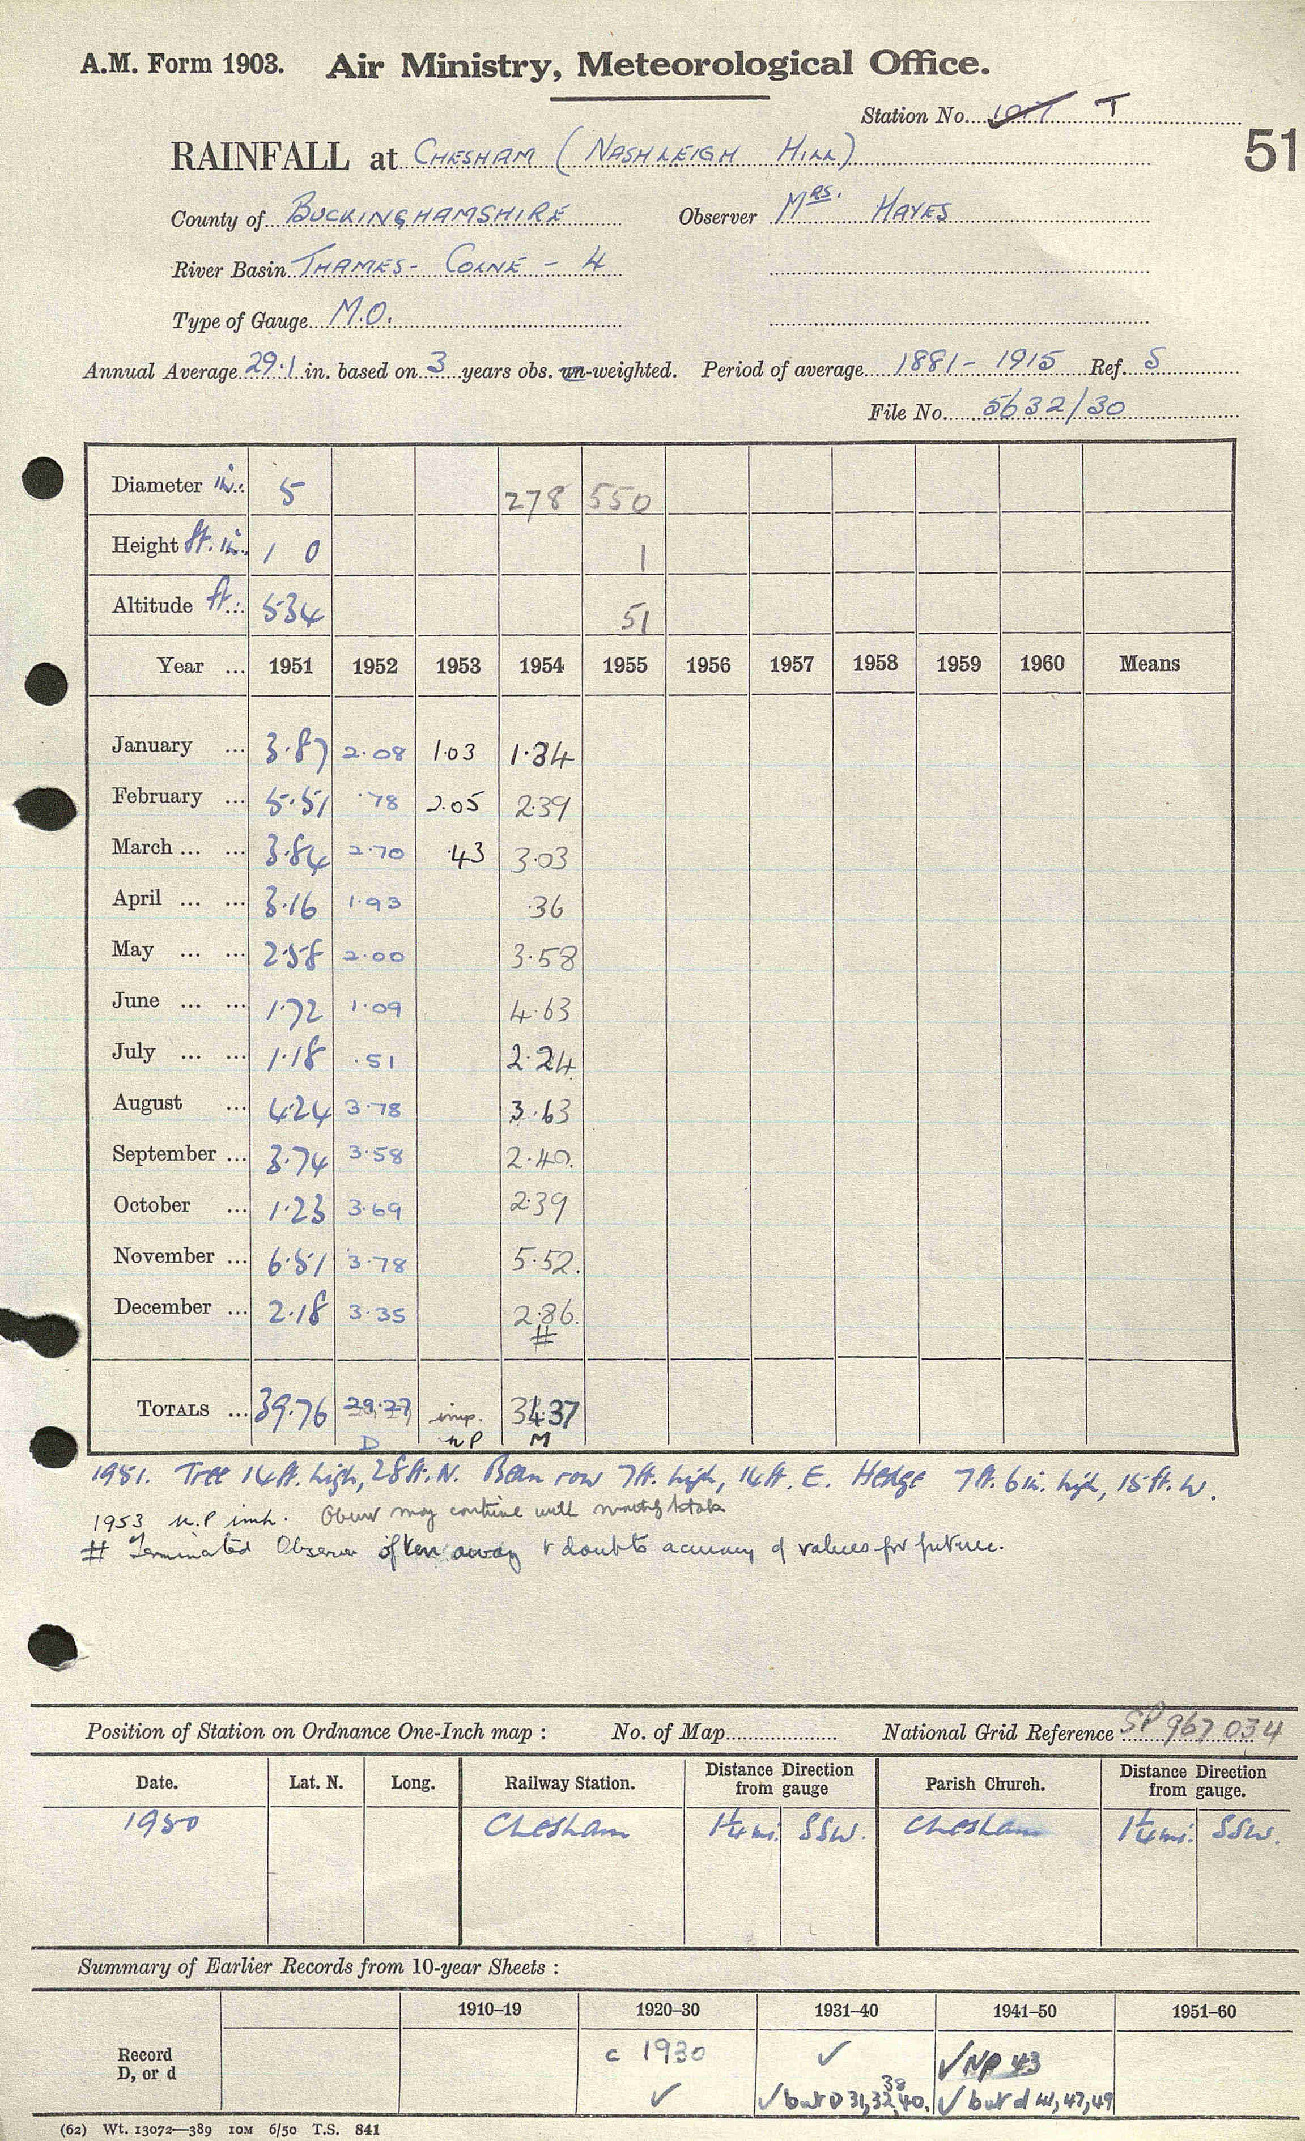 A.M. Form 1903. Air Ministry, Meteorological Office.
Station No. T
51
RAINFALL at CHESHAM (NASHLEIGH HILL)
County of BUCKINGHAMSHIRE Observer MRS. HAYES
River Basin THAMES - COLNE - 4
Type of Gauge M.O.
Annual Average 29.1 in. based on 3 years obs. un-weighted. Period of average 1881 - 1915 Ref. S
File No. 5632/30
Diameter in. 5 278 550
Height ft. in. 1 0 1
Altitude ft. 534 51
Year ... 1951 1952 1953 1954 1955 1956 1957 1958 1959 1960 Means
January ... 3.87 2.08 1.03 1.34
February ... 5.51 .78 2.05 2.39
March ... ... 3.84 2.70 .43 3.03
April ... ... 3.16 1.93 .36
May ... ... 2.58 2.00 3.58
June ... ... 1.72 1.09 4.63
July ... ... 1.18 .51 2.24
August ... 4.24 3.78 3.63
September ... 3.74 3.58 2.40
October ... 1.23 3.69 2.39
November ... 6.51 3.78 5.52
December ... 2.18 3.35 2.86
#
TOTALS ... 39.76 29.27 imp. 34.37
D NP M
1951. Tree 14ft. high, 28ft. N. Bean row 7ft. high, 14ft. E. Hedge 7ft. 6in. high, 15ft. W.
1953 N.P. Obsvr may continue with monthly totals
# Terminated Observer often away & doubts accuracy of values for future.
Position of Station on Ordnance One-Inch map : No. of Map National Grid Reference SP 967 034
Date. Lat. N. Long. Railway Station. Distance Direction from gauge Parish Church. Distance Direction from gauge.
1950 Chesham 1¼ mi. SSW. Chesham 1¼ mi. SSW.
Summary of Earlier Records from 10-year Sheets :
1910–19 1920–30 1931–40 1941–50 1951–60
Record c 1930 ✓ ✓ NP 43
D, or d ✓ ✓ but D 31, 32, 38, 40. ✓ but d 41, 47, 49
(62) Wt. 13072—389 10M 6/50 T.S. 841